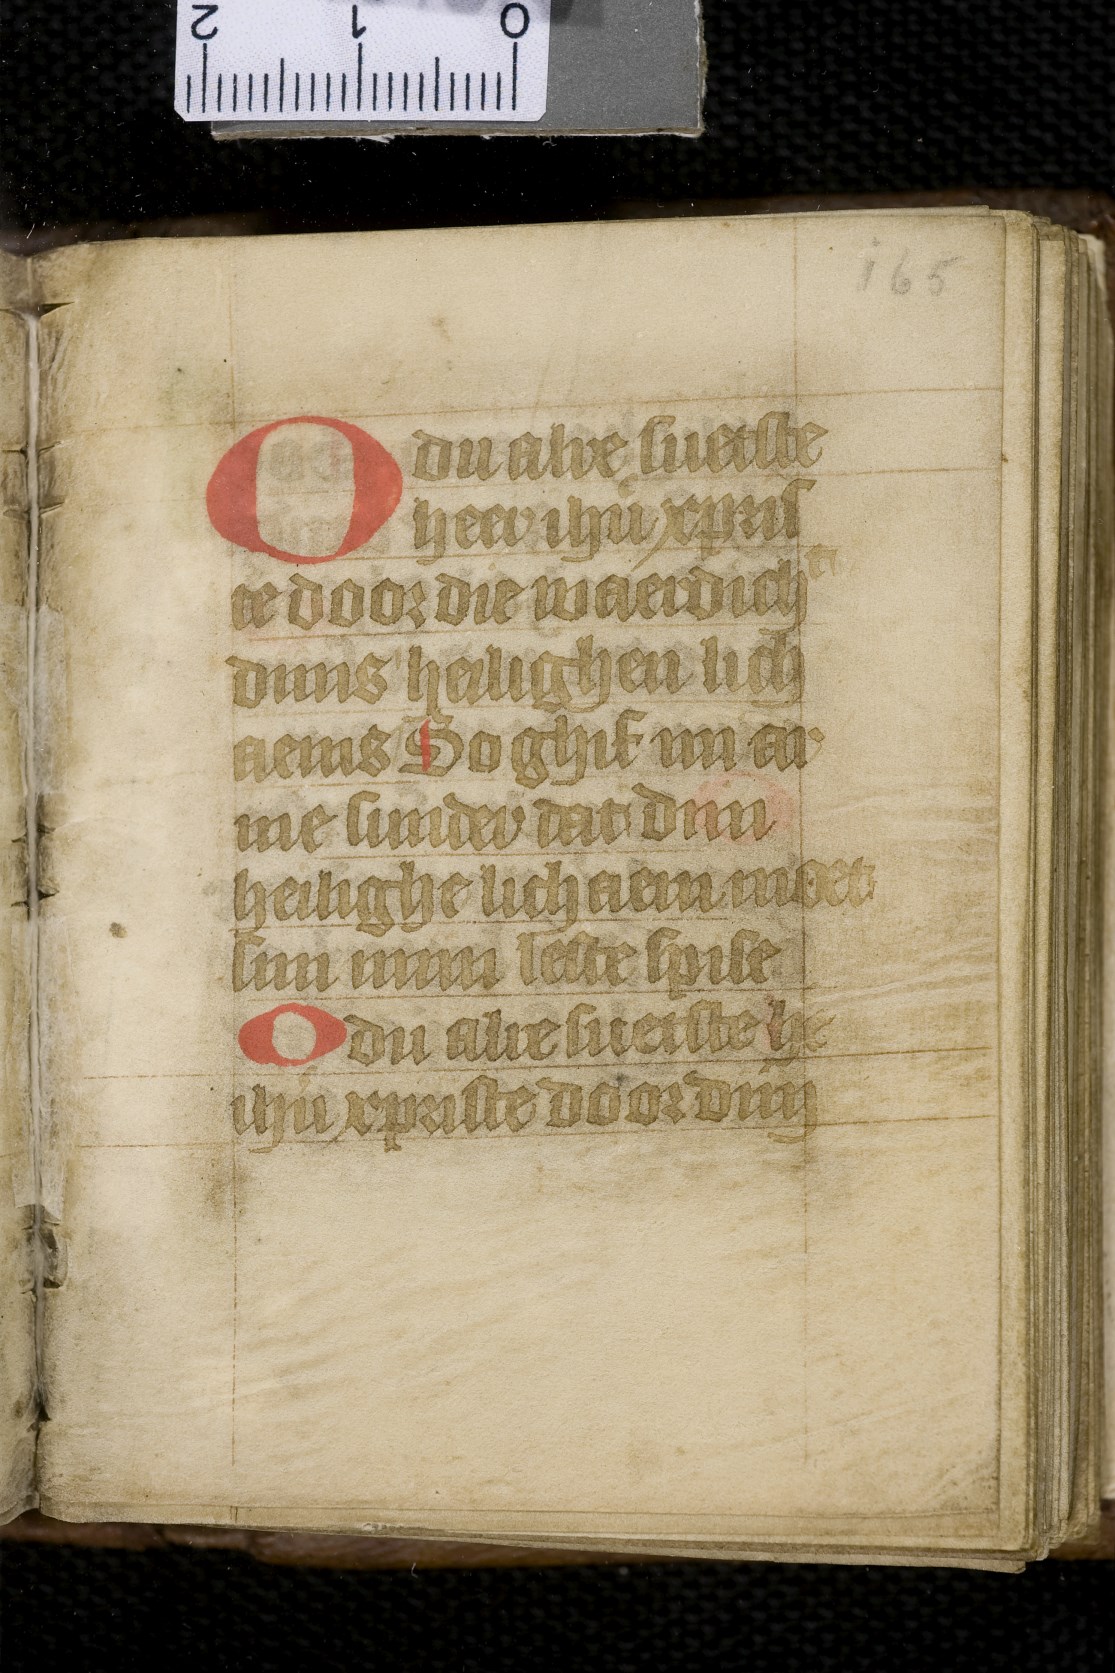 2 1 0
i65
O du alre suetste
heer ihū xpris
te door die waerdichᵗⁱ
dijns heilighen lich
aems So ghif mi ar
me sunder dat dijn
heilighe lichaem moet
sijn mijn leste spise
O du alre suetste he
ihū xpriste door dijn